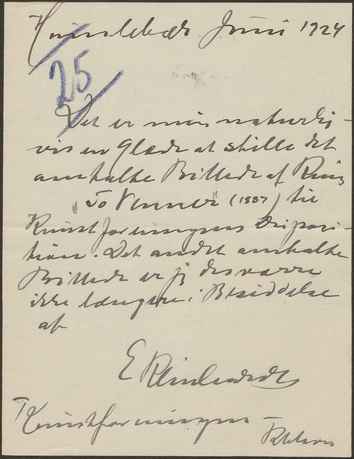 Humlebæk Juni 1924
25
Det er mig naturlig-
vis en Glæde at stille det
omtalte Billede af Ring
"To Venner" (1887) til
Kunstforeningens Disposi-
tion. Det andet omtalte
Billede er jeg desværre
ikke længere i Besiddelse
af
E
Kunstforeningen